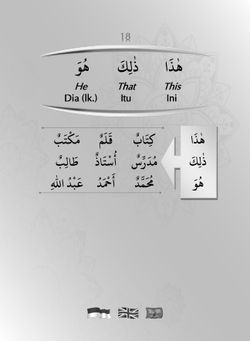 18
هٰذَا ذٰلِكَ هُوَ
This That He
Ini Itu Dia (lk.)
هٰذَا كِتَابٌ قَلَمٌ مَكْتَبٌ
ذٰلِكَ مُدَرِّسٌ أُسْتَاذٌ طَالِبٌ
هُوَ مُحَمَّدٌ أَحْمَدُ عَبْدُ اللهِ